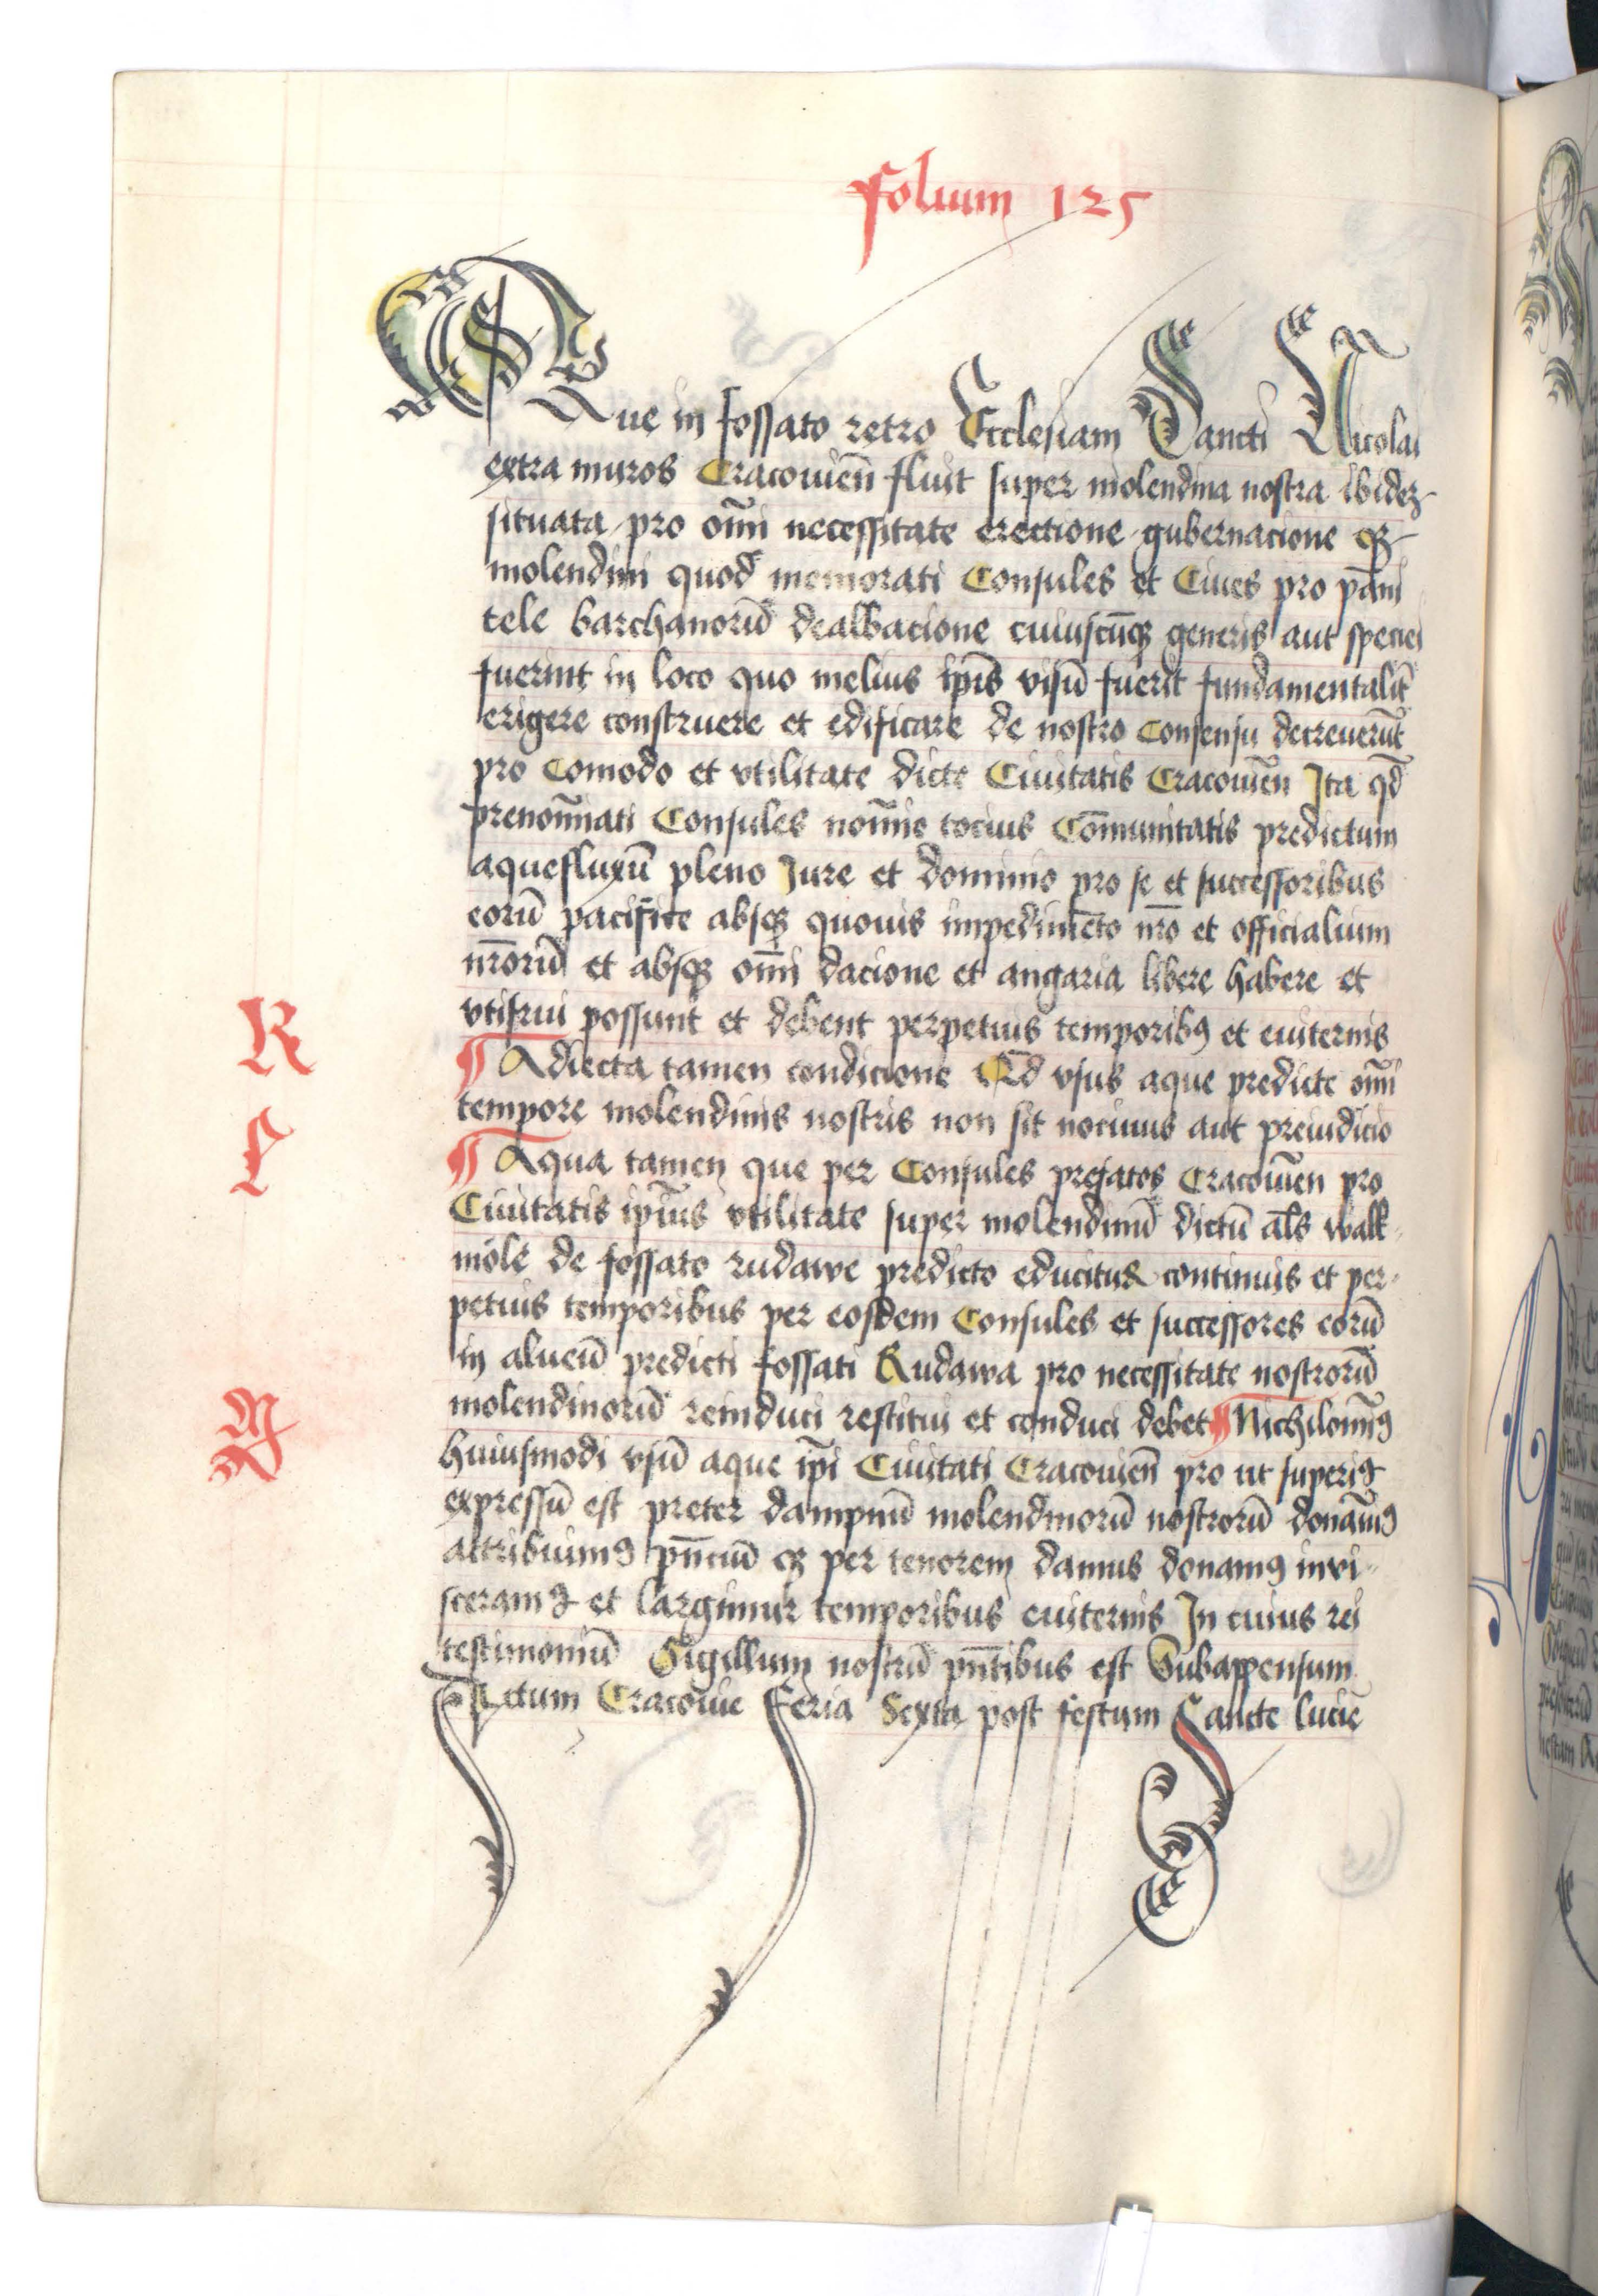 Folium 125
Que in fossato retro Ecclesiam Sancti Nicolai
extra muros Cracouien̄ fluit super molendina nostra ibidez
situata pro om̄i necessitate erectione gubernacione qʒ
molendini quod memorati Consules et Ciues pro pān̄i
tele barchanorū dealbacione cuiuscūqʒ generis aut speciei
fuerint in loco quo melius ip̄is visū fuerit fundamentalit̄
erigere construere et edificare de nostro Consensu decreuerūt
pro Comodo et vtilitate dicte Ciuitatis Cracouien̄ Ita qd̄
prenoīnati Consules noīne tocius Com̄unitatis predictum
aquefluxū pleno Jure et dominio pro se et successoribus
eorū pacifice absqʒ quouis impedimēto nr̄o et officialium
nr̄orū et absqʒ om̄i dacione et angaria libere habere et
vtifrui possunt et debent perpetuis temporibꝰ et euiternis
R
¶ Adiecta tamen condicione Qd̄ vsus aque predicte om̄i
tempore molendinis nostris non sit nociuus aut preiudicio
L
¶ Aqua tamen que per Consules prefatos Cracouien̄ pro
Ciuitatis ip̄ius vtilitate super molendinū dictū al̄s walk-
möle de fossato rudawe predicto educitur continuis et per-
petuis temporibus per eosdem Consules et successores eorū
in alueū predicti fossati Rudawa pro necessitate nostrorū
M
molendinorū reinduci restitui et conduci debet ¶ Nichilom̄ꝰ
huiusmodi vsū aque ip̄i Ciuitati Cracouien̄ pro ut superiꝰ
expressū est preter dampnū molendinorū nostrorū donam̄ꝰ
attribuimꝰ pn̄ciū qʒ per tenorem damus donamꝰ invi-
sceramꝰ et largimur temporibus euiternis In cuius rei
testimoniū Sigillum nostrū pn̄tibus est Subappensum
Actum Cracouie Feria Sexta post festum Sancte lucie